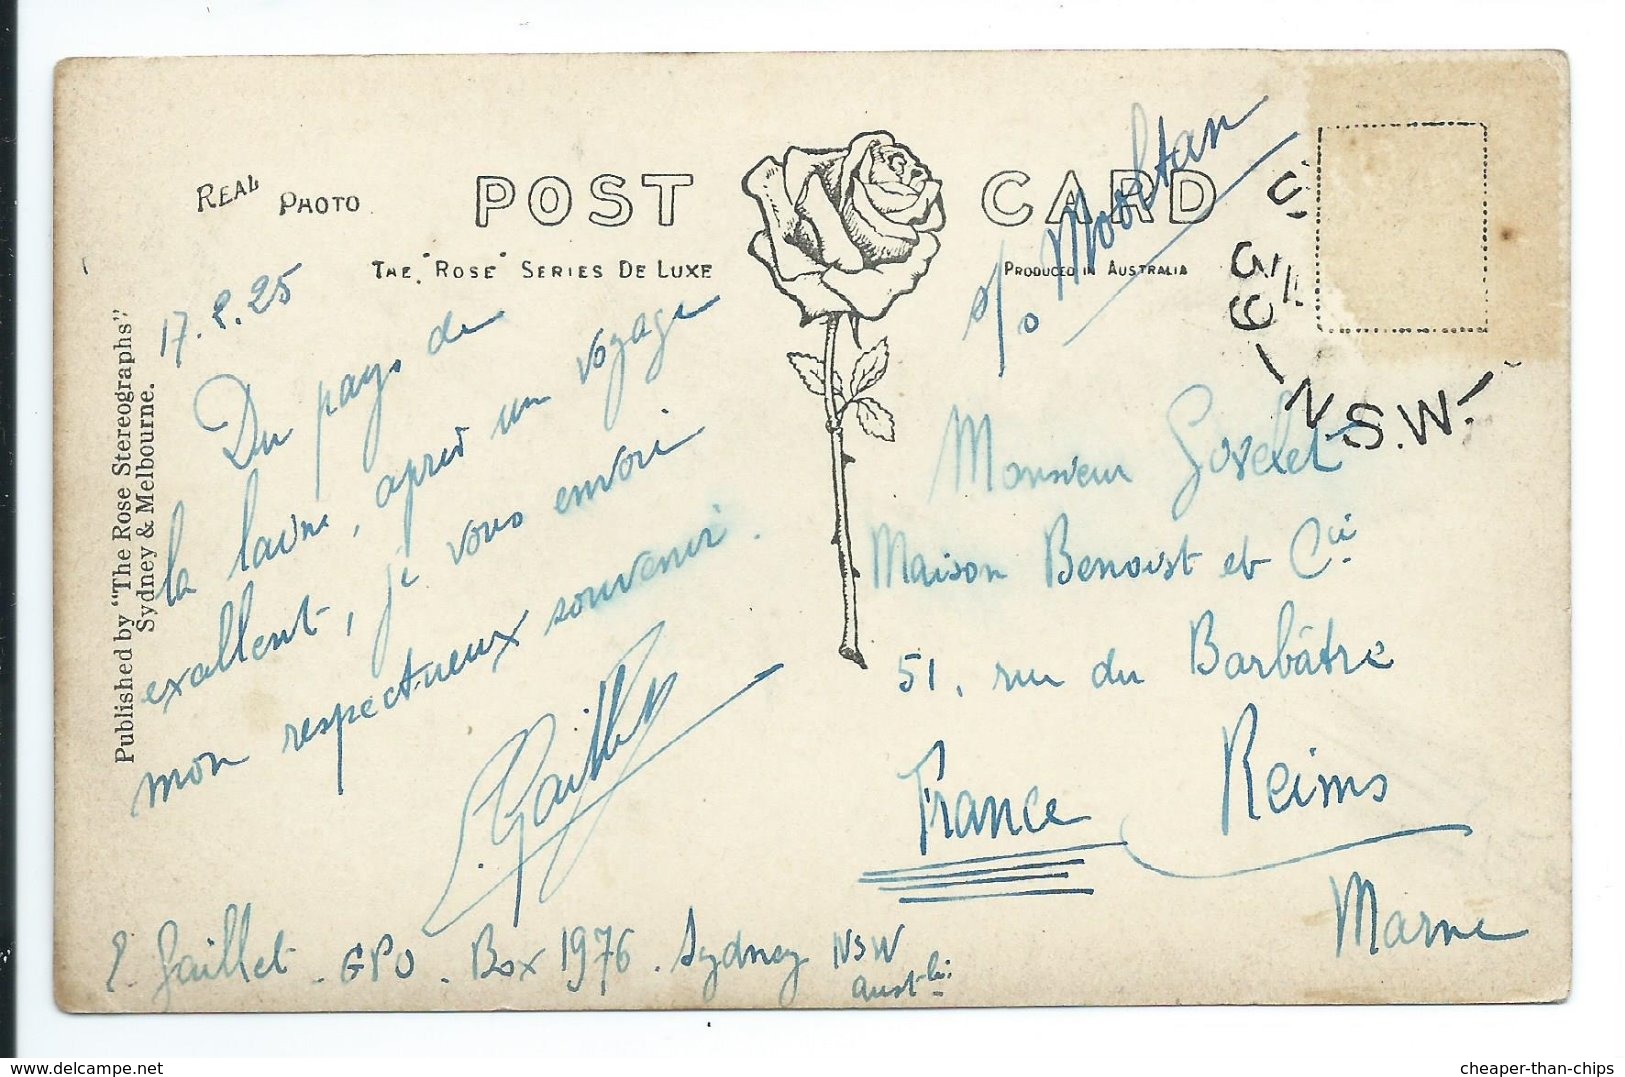 REAL PHOTO
POST CARD
THE "ROSE" SERIES DE LUXE
PRODUCED IN AUSTRALIA
Published by "The Rose Stereographs"
Sydney & Melbourne.
17.2.25
Du pays de
la laine, après un voyage
exallent, je vous envoie
mon respectueux souvenir.
E. Gaillet
E. Gaillet - GPO - Box 1976. Sydney NSW
Austlie
s/o Mooltan
Monsieur Govelet
Maison Benoist et Cie
51, rue du Barbâtre
Reims
France
Marne
N.S.W.
cheaper-than-chips